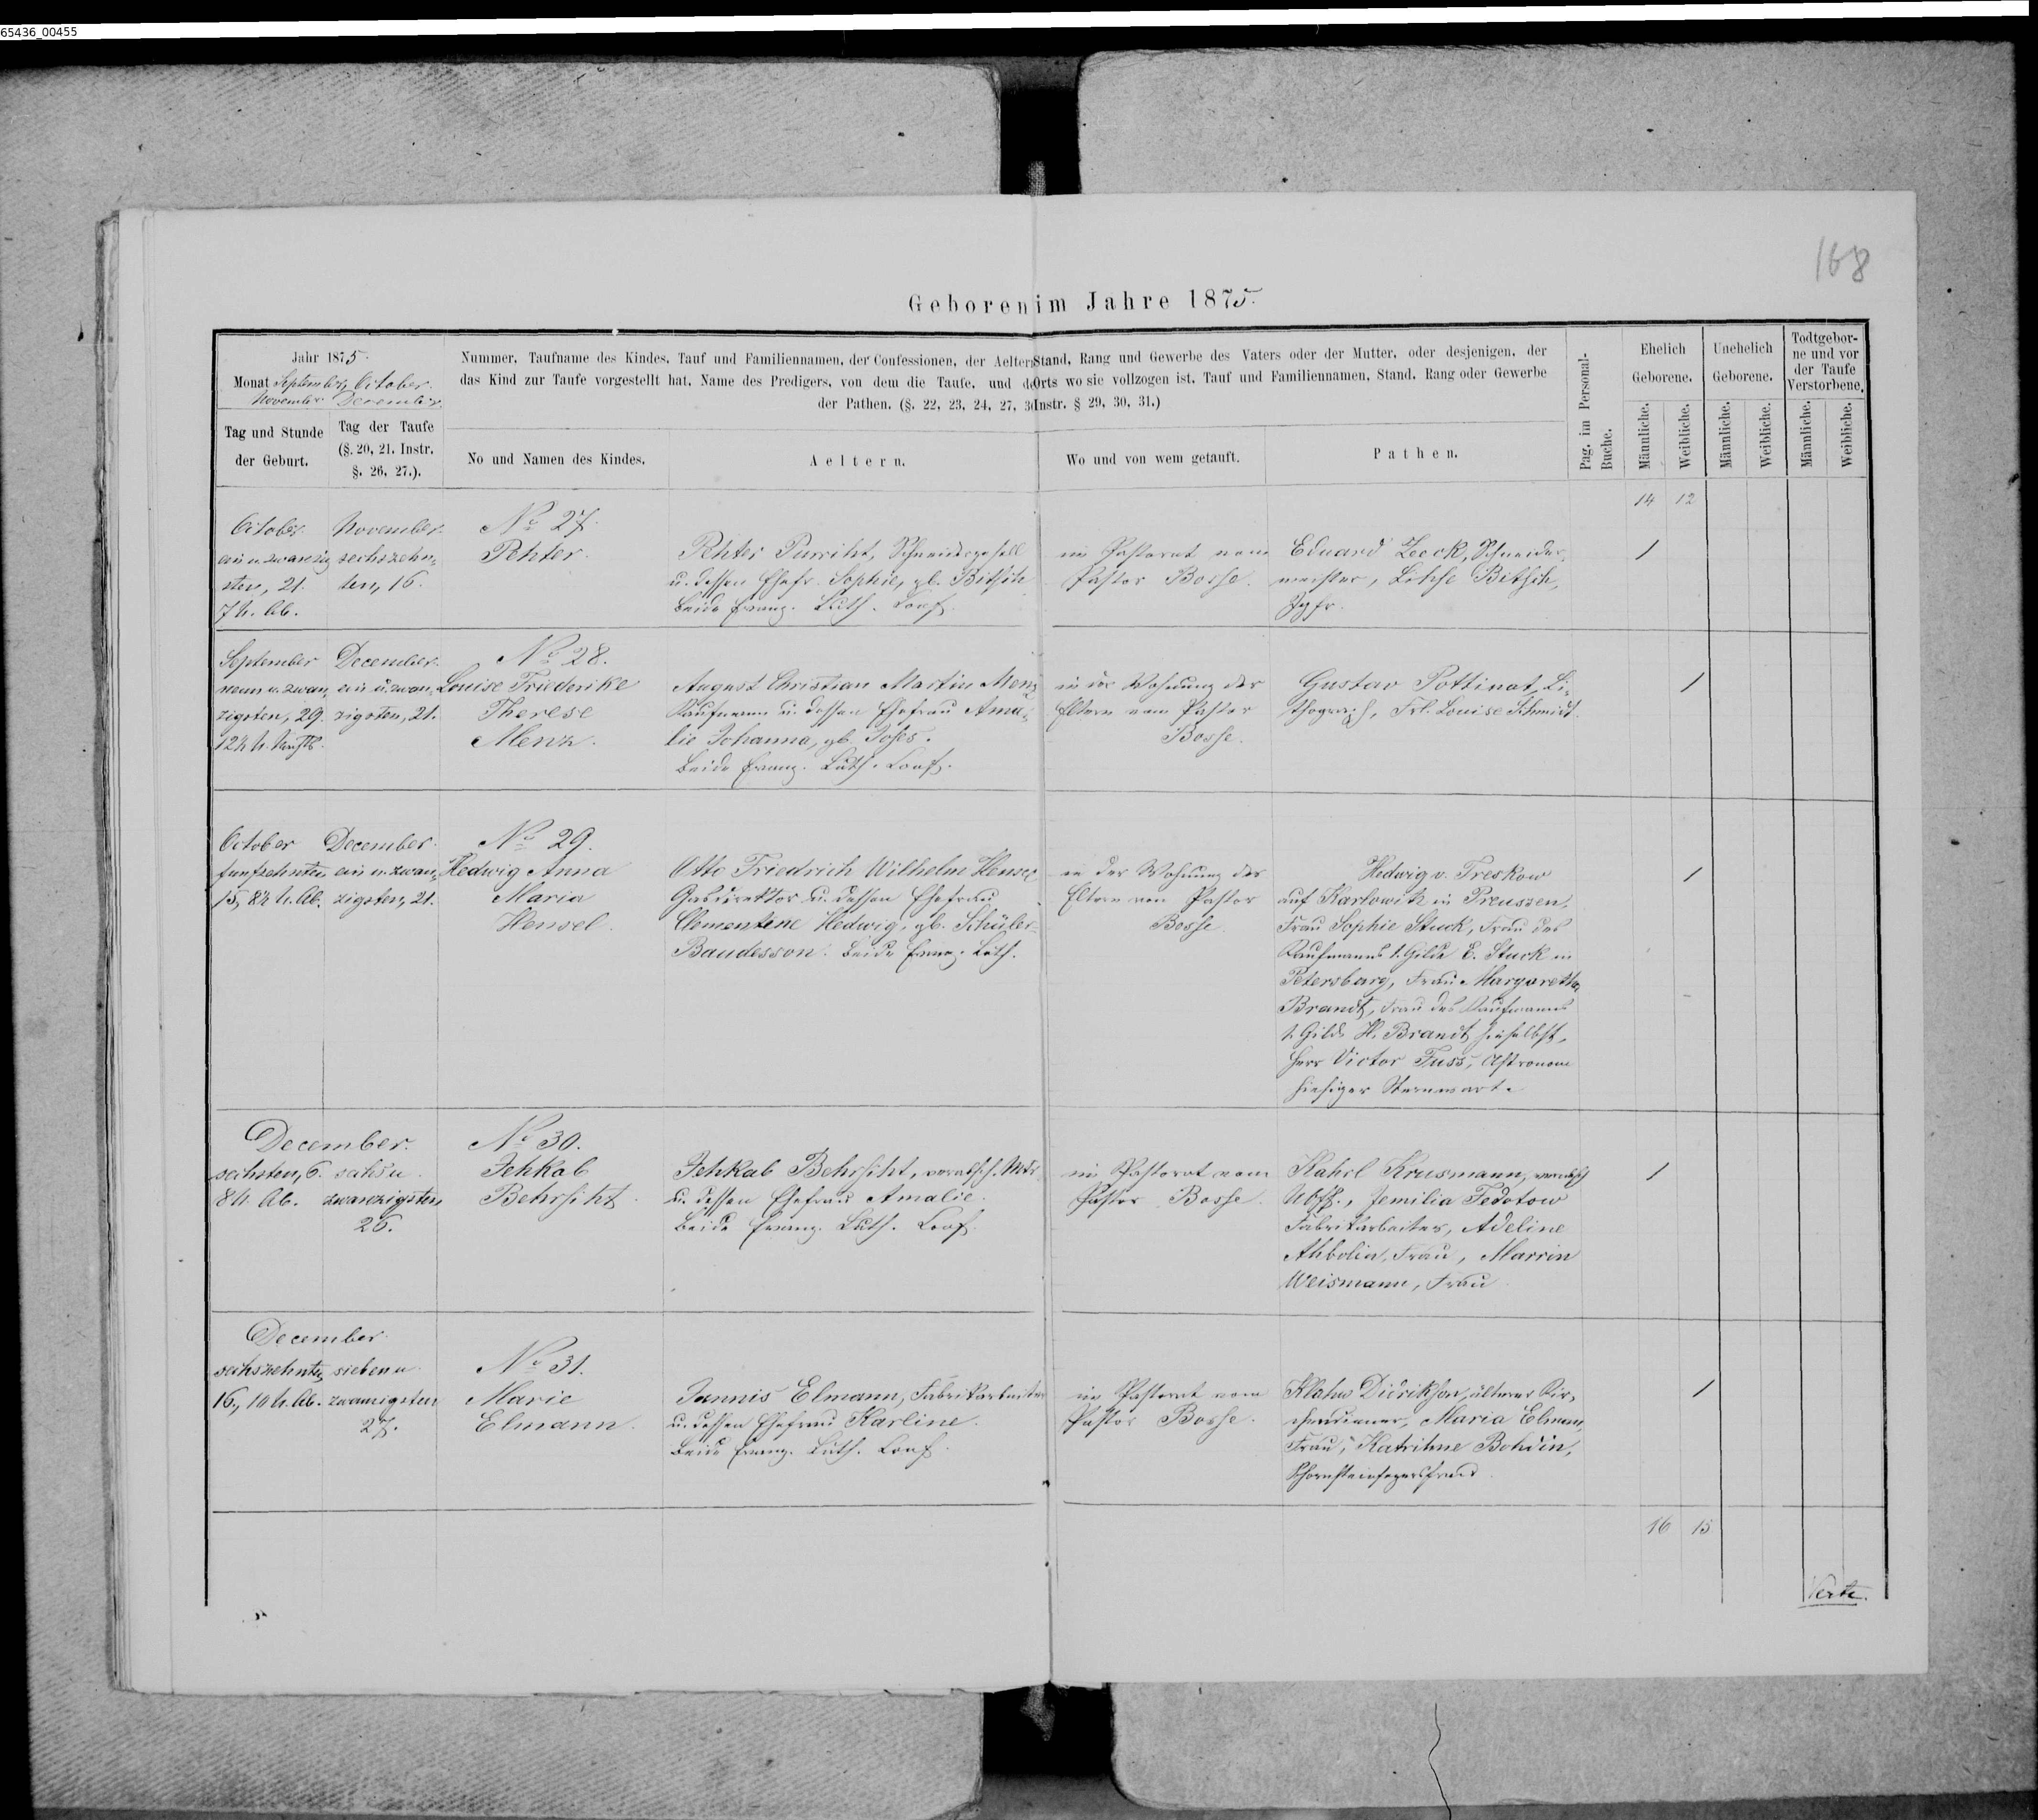 65436_00455
168
Geboren im Jahre 1875.
Jahr 1875.
Monat September, October.
November December.
Nummer, Taufname des Kindes, Tauf und Familiennamen, der Confessionen, der Aeltern Stand, Rang und Gewerbe des Vaters oder der Mutter, oder desjenigen, der
das Kind zur Taufe vorgestellt hat, Name des Predigers, von dem die Taufe, und des Orts wo sie vollzogen ist, Tauf und Familiennamen, Stand, Rang oder Gewerbe
der Pathen. (§. 22, 23, 24, 27, Instr. § 29, 30, 31.)
Pag. im Personal-
Buche.
Ehelich
Geborene.
Unehelich
Geborene.
Todtgebor-
ne und vor
der Taufe
Verstorbene.
Tag und Stunde
der Geburt.
Tag der Taufe
(§. 20, 21. Instr.
§. 26, 27.).
No und Namen des Kindes.
Aeltern.
Wo und von wem getauft.
Pathen.
Männliche.
Weibliche.
Männliche.
Weibliche.
Männliche.
Weibliche.
14 12
October
ein u. zwanzig
sten, 21.
7 h. Ab.
November
sechszehn
ten, 16.
No 27.
Pehter.
Pehter Purriht, Schneidergesell
u. dessen Ehefr. Sophie, gb. Bitsch
beide Evang. Luth. Conf.
im Pastorat vom
Pastor Bosse.
Eduard Zeck, Schneider
meister, Lihse Bitsch,
Jgfr.
1
September
neun u. zwan
zigsten, 29.
December
ein u. zwan
zigsten, 21.
No 28.
Louise Friederike
Therese
Menz.
August Christian Martin Menz
Kaufmann u. dessen Ehefrau Ama
lie Johanna, gb.
beide Evang. Luth. Conf.
in der Wohnung der
Eltern vom Pastor
Bosse.
Gustav Pottinat, Li
thograph, Frl. Louise Schmidt.
1
October
funfzehnten
15, 8½ h. Ab.
December
ein u. zwan
zigsten, 21.
No 29.
Hedwig Anna
Maria
Hensel.
Otto Friedrich Wilhelm Hensel
Gasdirektor u. dessen Ehefrau
Clementine Hedwig, gb. Schüler
Baudesson. beide Evang. Luth.
in der Wohnung der
Eltern von Pastor
Bosse
Hedwig v. Treskow
auf Karlowitz in Preussen,
Frau Sophie Stuck, Frau des
Kaufmanns 1. Gilde E. Stuck in
Petersburg, Frau Margaretha
Brandt, Frau des Kaufmanns
1. Gilde H. Brandt hieselbst,
Herr Victor Fuss, Astronom
hiesiger Sternwart.
1
December.
sechsten, 6.
8 h. Ab.
sechs u
zwanzigsten
26.
No 30.
Jehkab
Behrsiht.
Jehkab Behrsiht, verabsch. Matr
u. dessen Ehefrau Amalie.
beide Evang. Luth. Conf.
im Pastorat vom
Pastor Bosse.
Kahrl Krusmann, verabsch
Uoff., Jemilia Fedotow
Fabrikarbeiter, Adeline
Ahbolin, Frau, Marrin
Weismann, Frau
1
December
sechszehnten
16., 10 h. Ab.
sieben u
zwanzigsten
27.
No 31.
Marie
Elmann.
Jannis Elmann, Fabrikarbeiter
u. dessen Ehefrau Karline.
beide Evang. Luth. Conf.
im Pastorat vom
Pastor Bosse.
Klahw Didrikson, älterer Kir
chendiener, Maria Elmann,
Frau, Katrihne Bohdin,
Schornsteinfegersfrau
1
16 15
Verte.